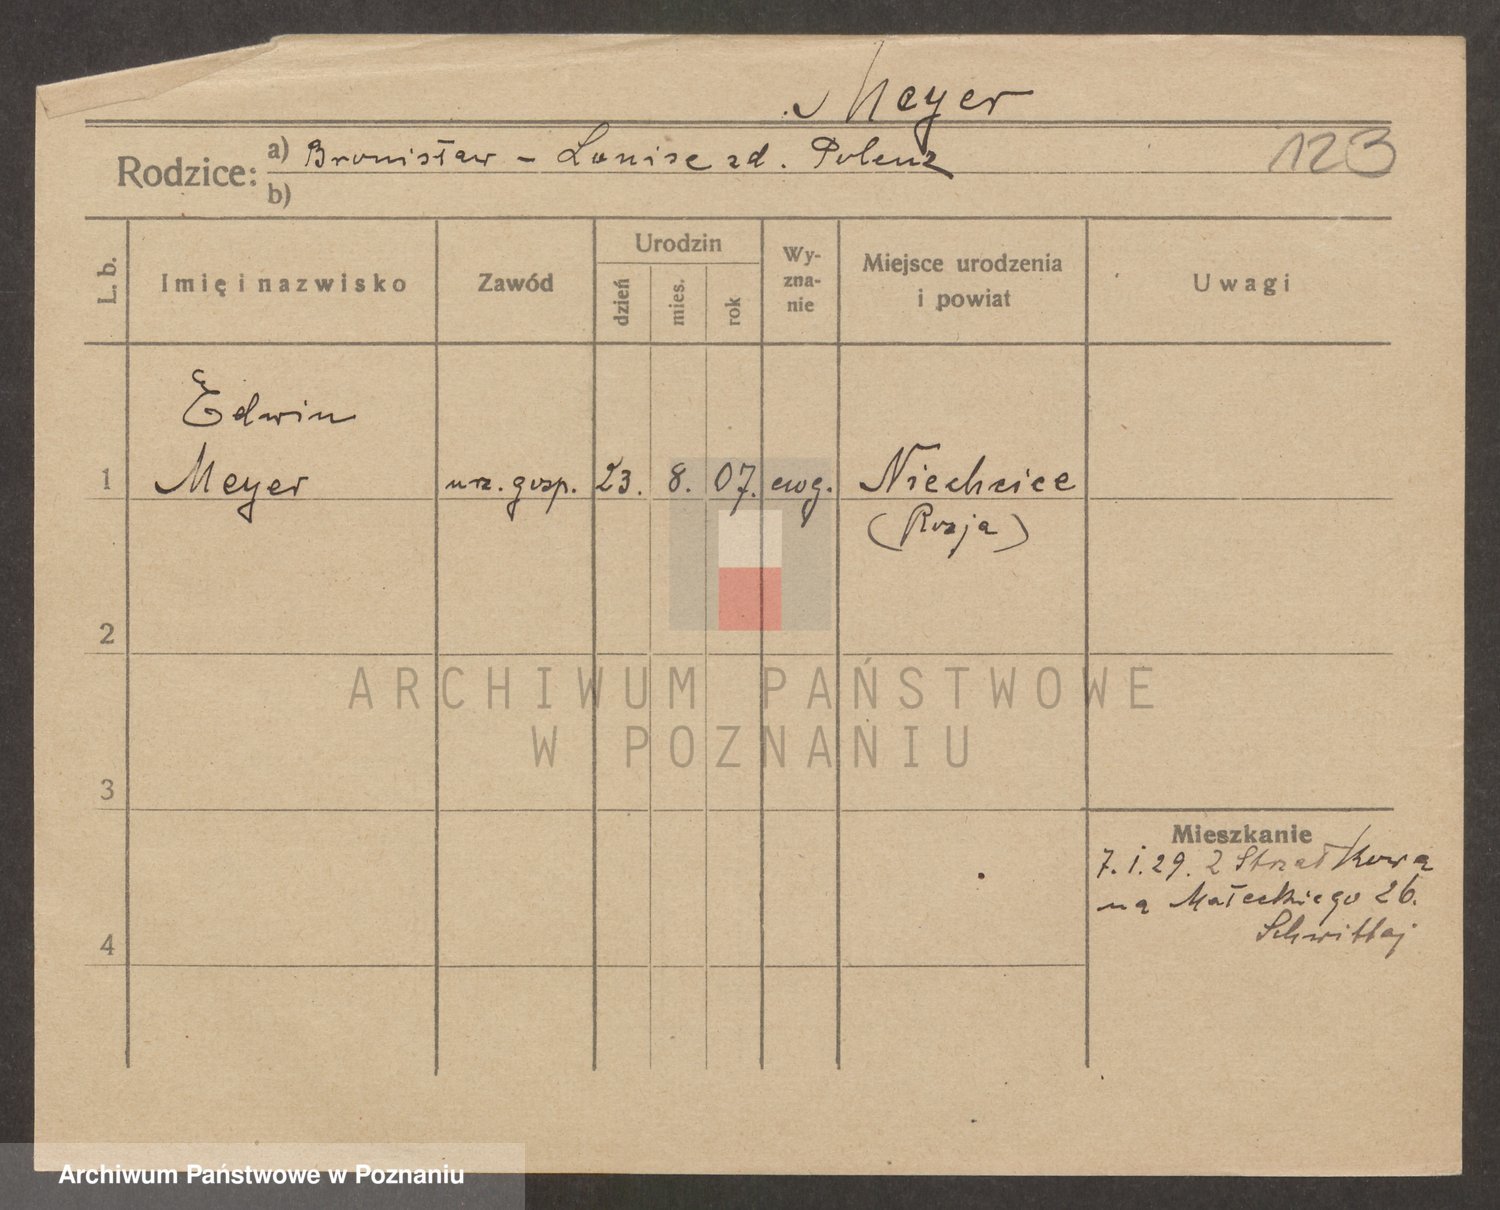 Meyer
Rodzice: a) Bronisław - Louise zd. Polenz
123
b)
L. b.
Imię i nazwisko
Zawód
Urodzin
dzień
mies.
rok
Wy-
zna-
nie
Miejsce urodzenia
i powiat
Uwagi
Edwin
1 Meyer urz. gosp. 23. 8. 07. ewg. Niechcice
(Rosja)
2
ARCHIWUM PAŃSTWOWE
W POZNANIU
3
Mieszkanie
7. 1. 29. Z Strzałkowa
na Małeckiego 26.
4
Archiwum Państwowe w Poznaniu